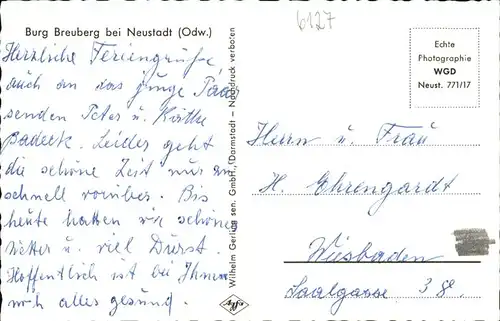 Burg Breuberg bei Neustadt (Odw.)
6127
Herzliche Feriengrüße,
auch an das junge Paar
senden Peter u. Käthe
Leider geht
die schöne Zeit nur
schnell vorüber. Bis
heute hatten wir schönes
Wetter u. viel Durst.
Hoffentlich ist bei Ihnen
noch alles gesund.
Wilhelm Gerling sen. GmbH., Darmstadt — Nachdruck verboten
Agfa
Echte
Photographie
WGD
Neust. 771/17
Herrn u. Frau
H. Ehrengardt
Wiesbaden
Saalgasse 38.